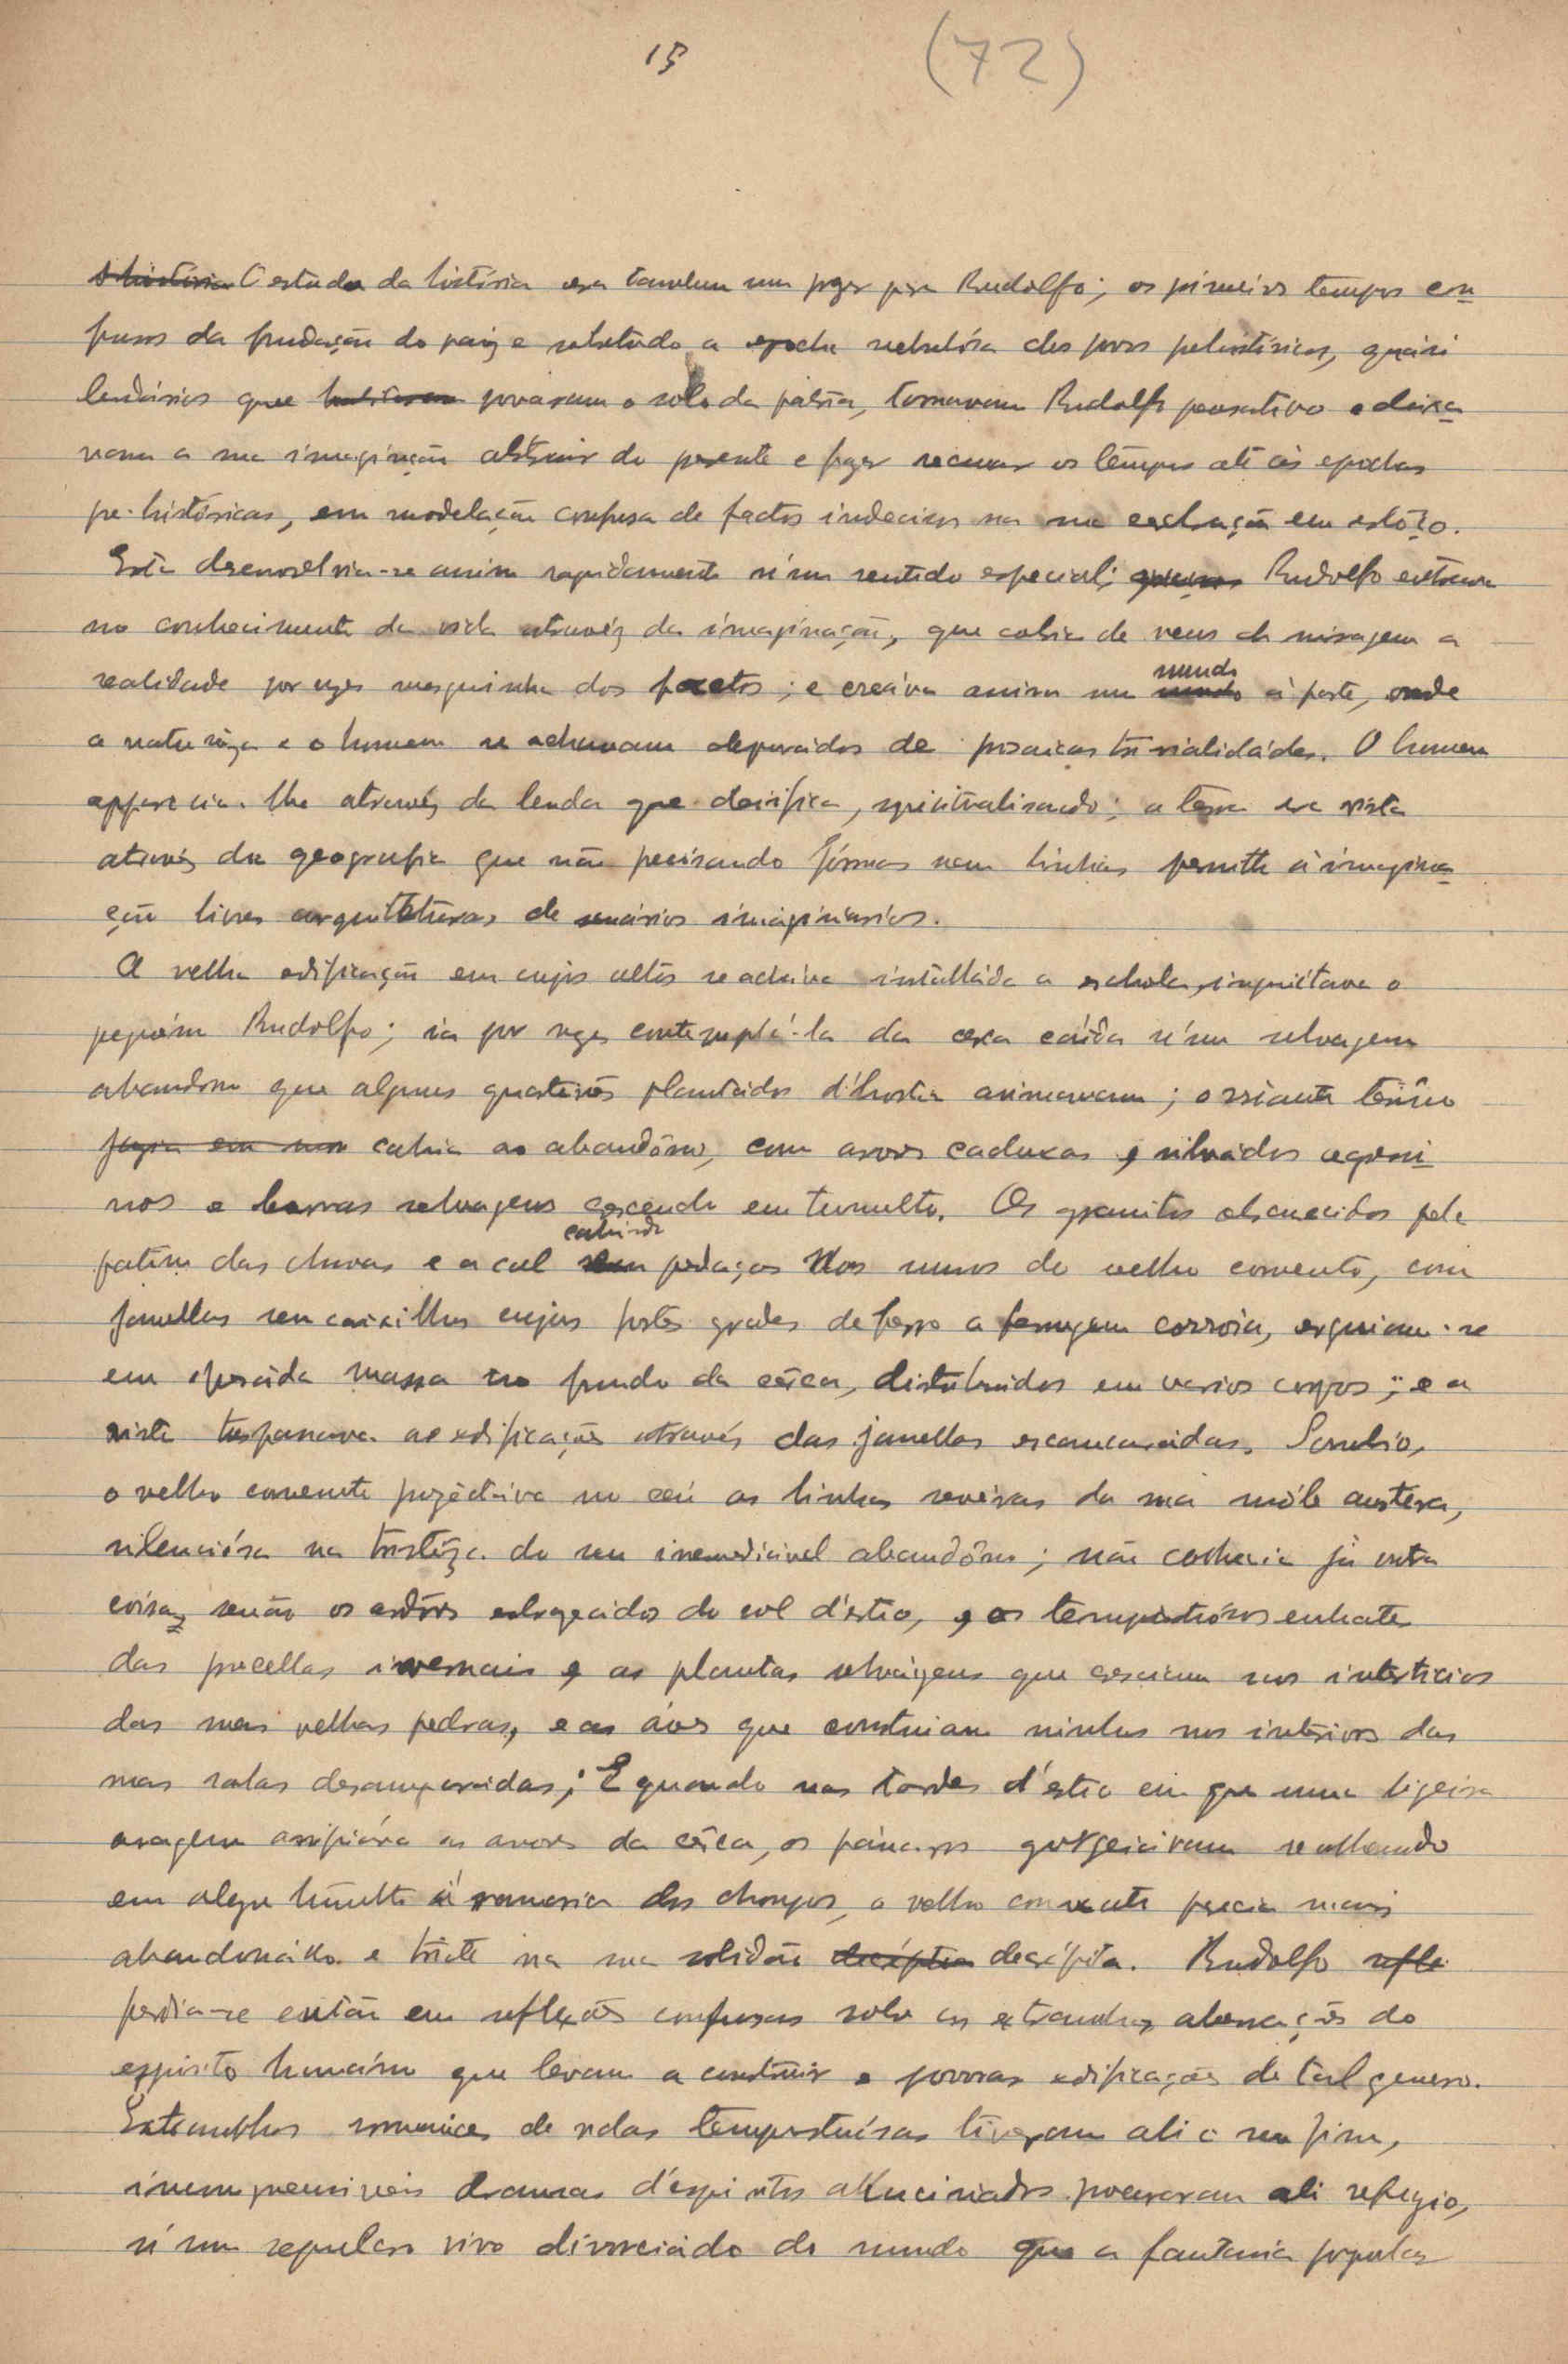 15 (72)
A história O estudo da história era tambem um prazer para Rudolfo; os primeiros tempos con
fusos da fundação do paiz e sobretudo a epocha nebulósa dos povos prehistóricos, quási
lendários que habitaram povoaram o solo da patria, tornavam Rudolfo pensativo e deixa
vam a sua imaginação abstrair do presente e fazer recuar os tempos até ás epochas
pre-históricas, em modelação confusa de factos indecisos na sua evolução em esbôço.
Esta desenvolvia-se assim rapidamente n'um sentido especial; Rudolfo entrava
no conhecimento da vida atravéz da imaginação, que cobria de veus de miragem a
realidade por vezes mesquinha dos factos; e creáva assim um mundo mundo á parte, onde
a naturêza e o homem se achavam depurados de prosaicas trivialidádes. O homem
apparecia-lhe atravéz da lenda que deifica, spiritualisando; a terra era vista
atravéz da geografia que não precisando fórmas nem linhas permitte á imagina
ção livres arquitéturas de scenários imaginários.
A velha edificação em cujos altos se acháva installáda a eschola, inquietava o
pequêno Rudolfo; ia por vezes contemplá-la da cerca caída n'um selvagem
abandono que alguns quarteirões plantados d'hortas animavam; o restante terrêno
jazia em um cahia ao abandôno, com arvores caducas e silvados agressi
vos e hervas selvagens crescendo em tumulto. Os granitos obscurecidos pela
patina das chuvas e a cal cahindo em pedaços nos muros do velho convento, com
janellas sem caixilhos cujas fortes grades de ferro a ferrugem corroía, erguiam-se
em pesáda massa no fundo da cêrca, distribuidos em varios corpos; e a
vista traspassava as edificações atravéz das janellas escancaradas. Sombrio,
o velho convento projectáva no céu as linhas sevéras da sua móle austera,
silenciósa na tristêza do seu irremediável abandôno; não conhecia já outra
coisa senão os ardôres esbrazeados do sol d'estio, e os tempestuósos embates
das procellas invernais e as plantas selvágens que cresciam nos intersticios
das suas velhas pedras, e as áves que construiam ninhos nos interiores das
suas salas desamparadas; E quando nas tardes d'estio em que uma ligeira
aragem arripiáva as arvores da cêrca, os pássaros gorgeiavam recolhendo
em alegre túmulto á ramaria dos choupos, o velho convento parecia mais
abandonado e triste na sua solidão decrépita decrépita. Rudolfo refle
perdia-se então em reflexões confusas sobre as extranhas aberrações do
espirito humâno que levam a construir e povoar edificações de tal genero.
Extranhos romances de vidas tempestuósas tiveram ali o seu fim,
incompreensiveis dramas d'espiritos allucinados procuraram ali refugio,
n'um sepulcro vivo divorciado do mundo que a fantasia popular